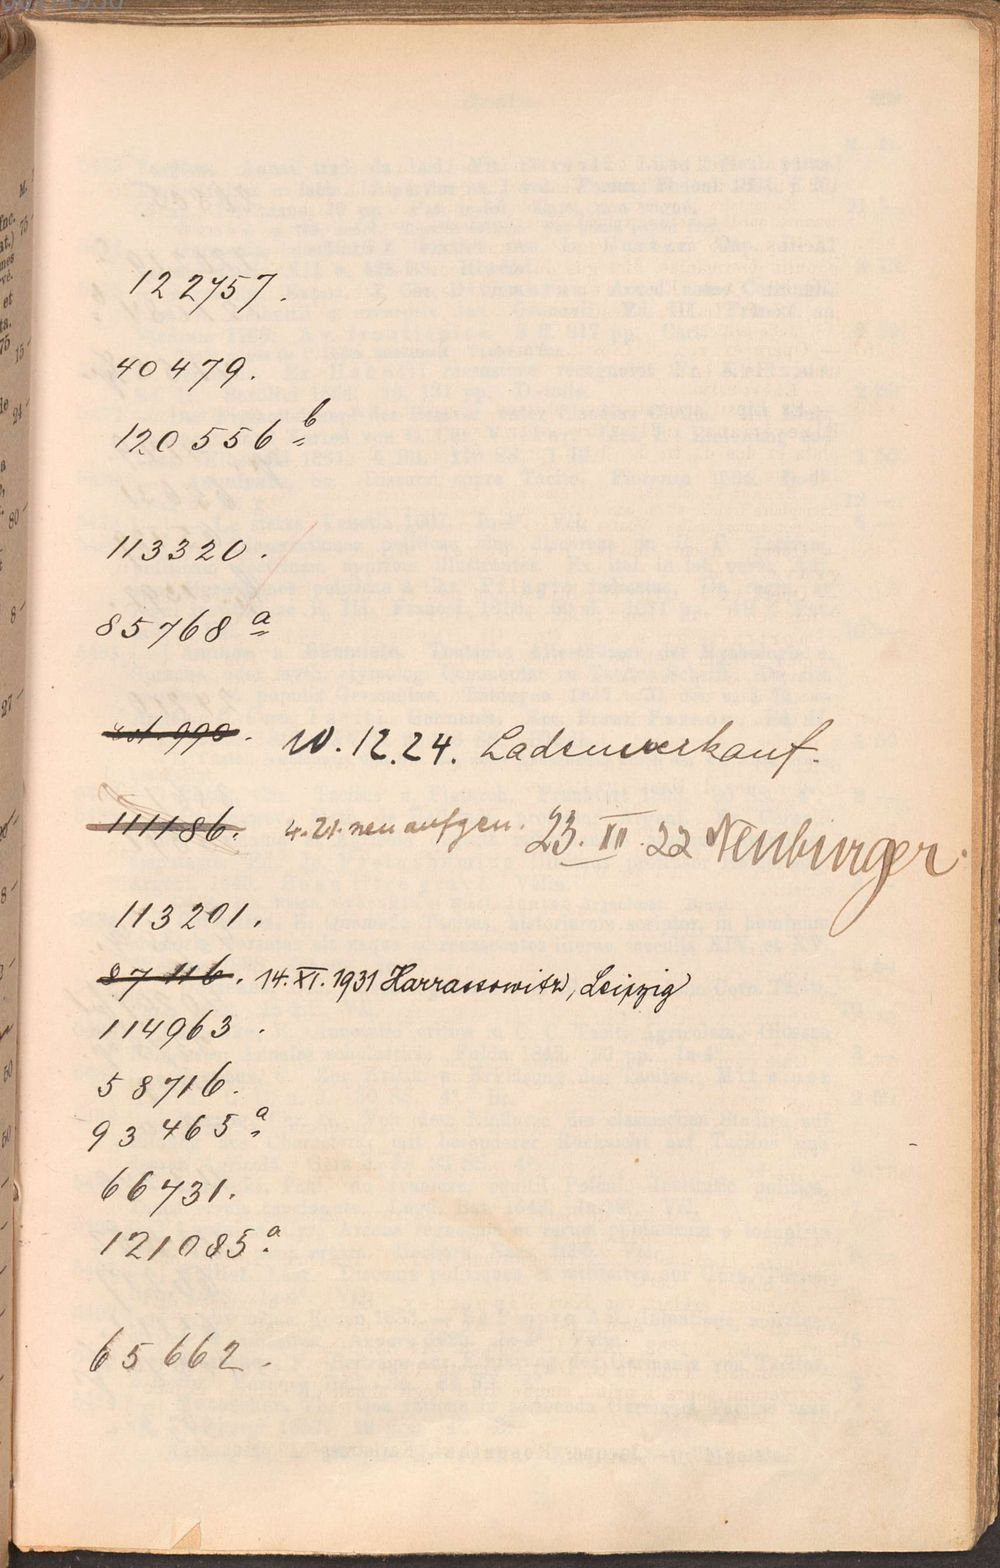 122757.
40479.
120556 b
113320.
85768 a
990. 10.12.24. Ladenverkauf.
111186. 4.21. neu aufgen. 23. XII. 22 Neuburger.
113201.
87116. 14. XI. 1931 Harrassowitz, Leipzig
114963.
58716.
93465 a
66731.
121085. a
65662.